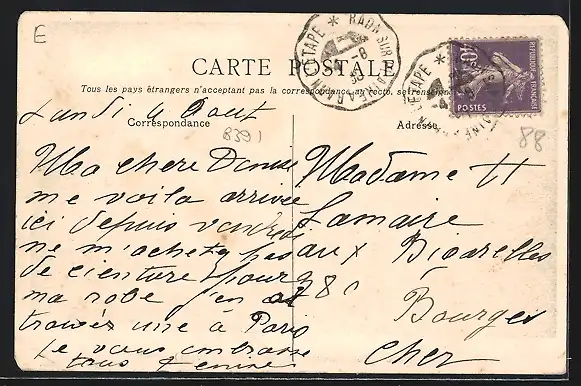 E
CARTE POSTALE
Tous les pays étrangers n'acceptent pas la correspondance au recto. se renseigner
Lundi 4 Aout
Correspondance
8391
Ma chere Denise
me voila arrivée
ici depuis vendredi
ne m'achetez pas
de cienture pour
ma robe j'en ai
trouvés une à Paris
Je vous embrasse
tous
Adresse
88
Madame H
Lamaire
aux Bigarelles
Bourges
Cher
RAON-SUR-
ETAPE
40c
REPUBLIQUE FRANÇAISE
POSTES